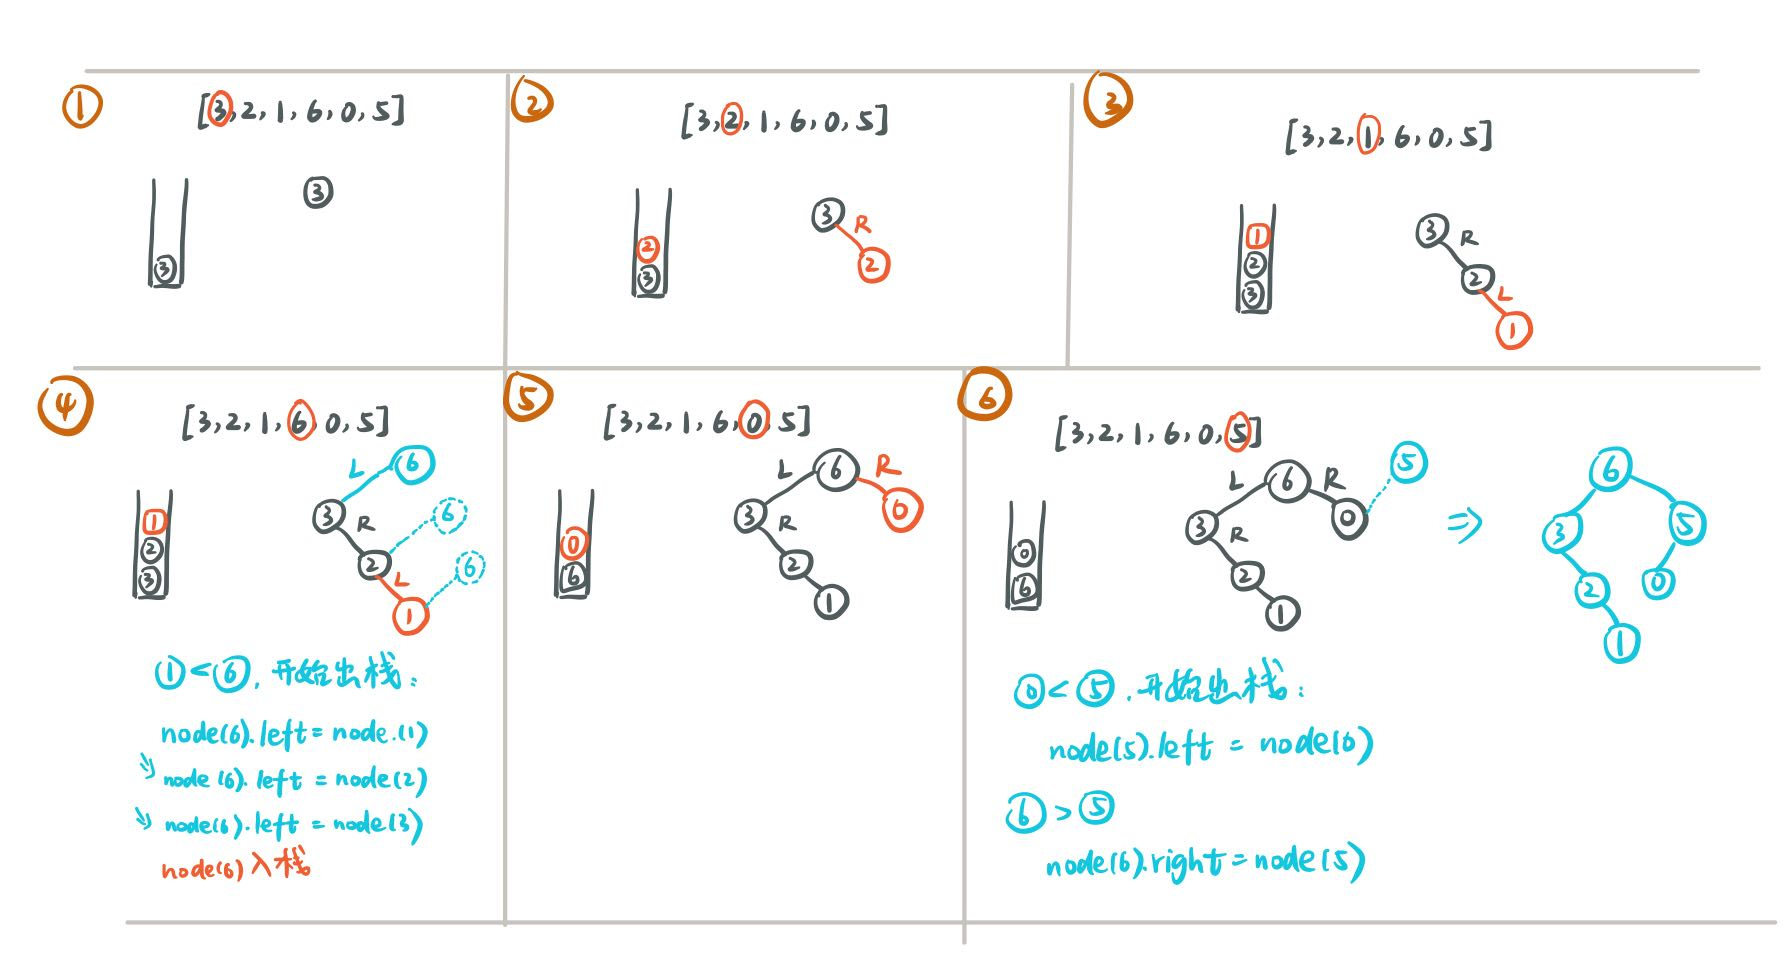 ①
[3,2,1,6,0,5]
3
3
②
[3,2,1,6,0,5]
2
3
3
R
2
③
[3,2,1,6,0,5]
1
2
3
3
R
2
L
1
④
[3,2,1,6,0,5]
1
2
3
L
6
3
R
6
2
L
6
1
①<⑥,开始出栈:
node(6).left=node.(1)
↘ node(6).left=node(2)
↘ node(6).left=node(3)
node(6)入栈
⑤
[3,2,1,6,0,5]
0
6
L
6
R
3
R
0
2
1
⑥
[3,2,1,6,0,5]
0
6
L
6
R
5
3
R
0
2
1
⇒
6
3
5
2
0
1
⓪<⑤,开始出栈:
node(5).left = node(0)
⑥>⑤
node(6).right=node(5)